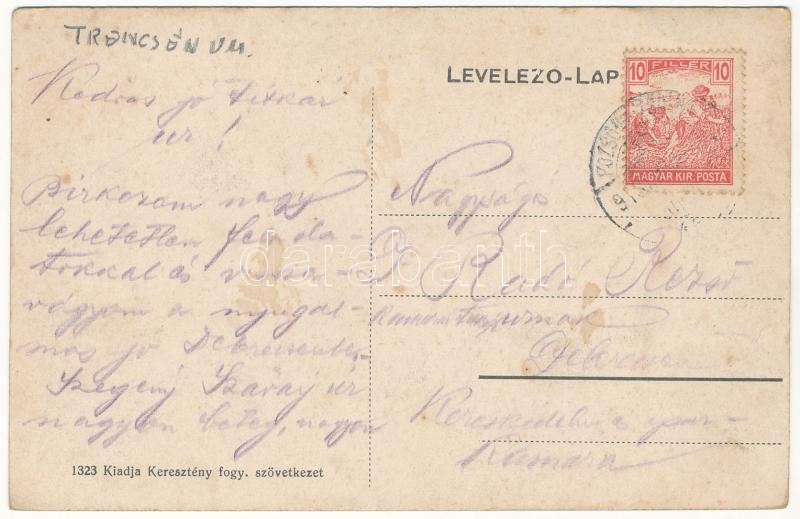 TRENCSÉN VM.
Kedves jó titkár
úr!
Birkozom nagy
lehetetlen felada-
tokkal és vissza-
vágyom a nyugal-
mas jó Debreczenbe.
Szegény Szávay úr
nagyon beteg, nagyon
1323 Kiadja Keresztény fogy. szövetkezet
LEVELEZŐ-LAP
10 FILLÉR 10
MAGYAR KIR. POSTA
POZSONY
Nagyságos
Dr Radó Rezső
Kamarai
Debreczen
Kereskedelmi és ipar-
Kamara
darabanth